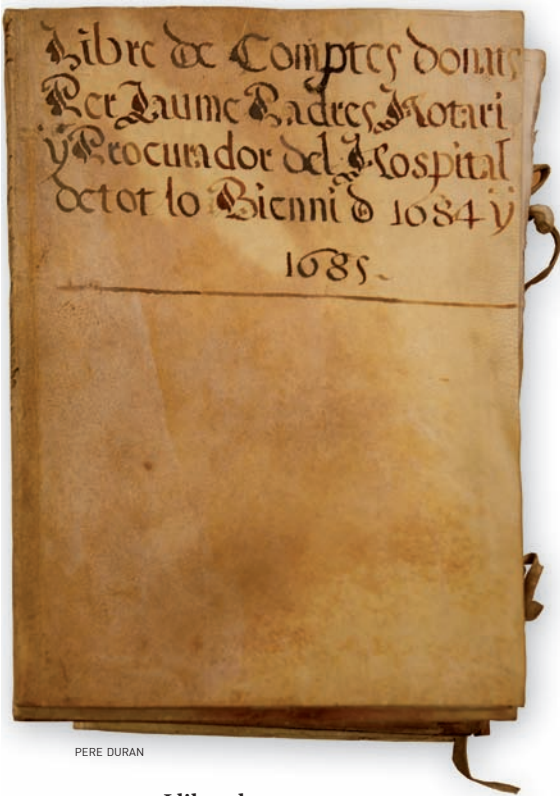 Libre de Comptes donats
Per Jaume Padres Notari
ÿ Procurador del Hospital
detot lo Bienni d 1684 ÿ
1685.
PERE DURAN